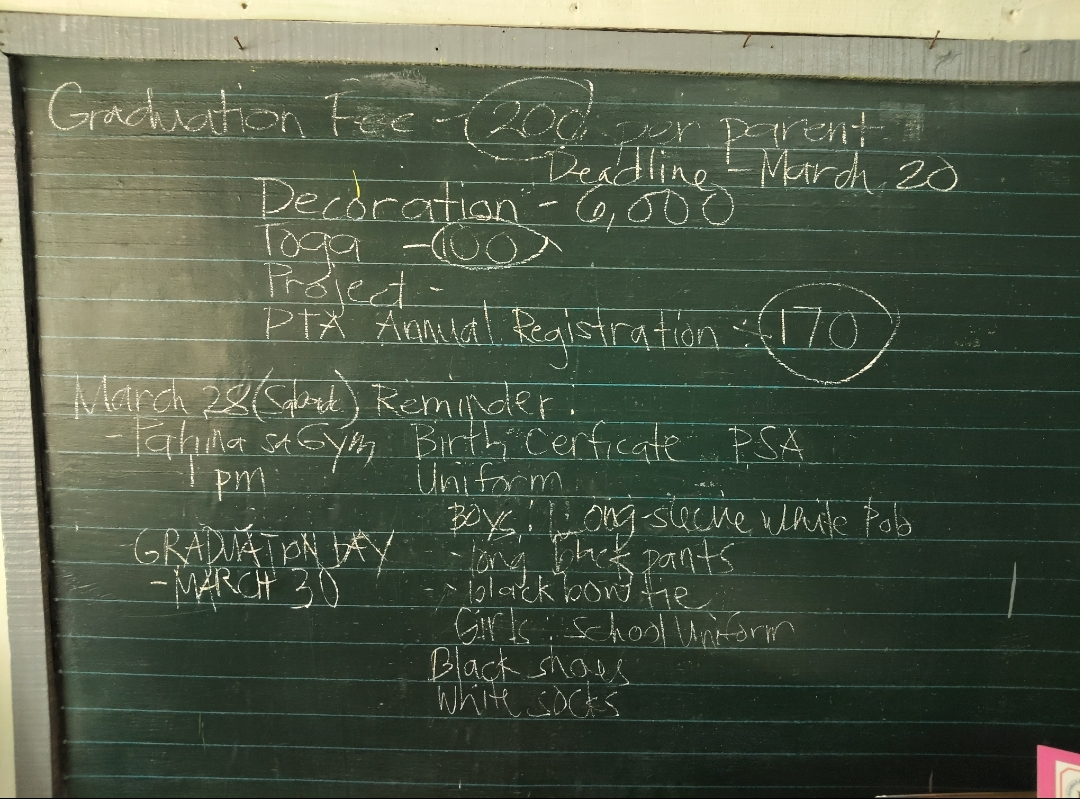 Graduation Fee - 200 per parent
Deadline - March 20
Decoration - 6,000
Toga - 100
Project -
PTA Annual Registration : 170
March 28 (Sabado) Reminder:
- Pahina sa Gym Birth Cerficate PSA
1 pm Uniform
Boys : Long-sleeve white Pob
GRADUATION DAY - long black pants
- MARCH 30 - black bow tie
Girls : School Uniform
Black shoes
White socks